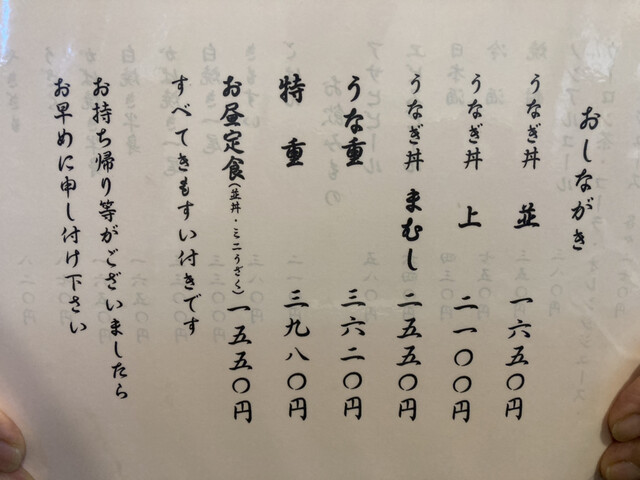 おしながき
うなぎ丼 並 一六五〇円
うなぎ丼 上 二一〇〇円
うなぎ丼 まむし 二五五〇円
うな重 三六二〇円
特重 三九八〇円
お昼定食(並丼・ミニうざく) 一五五〇円
すべてきもすい付きです
お持ち帰り等がございましたら
お早めに申し付け下さい